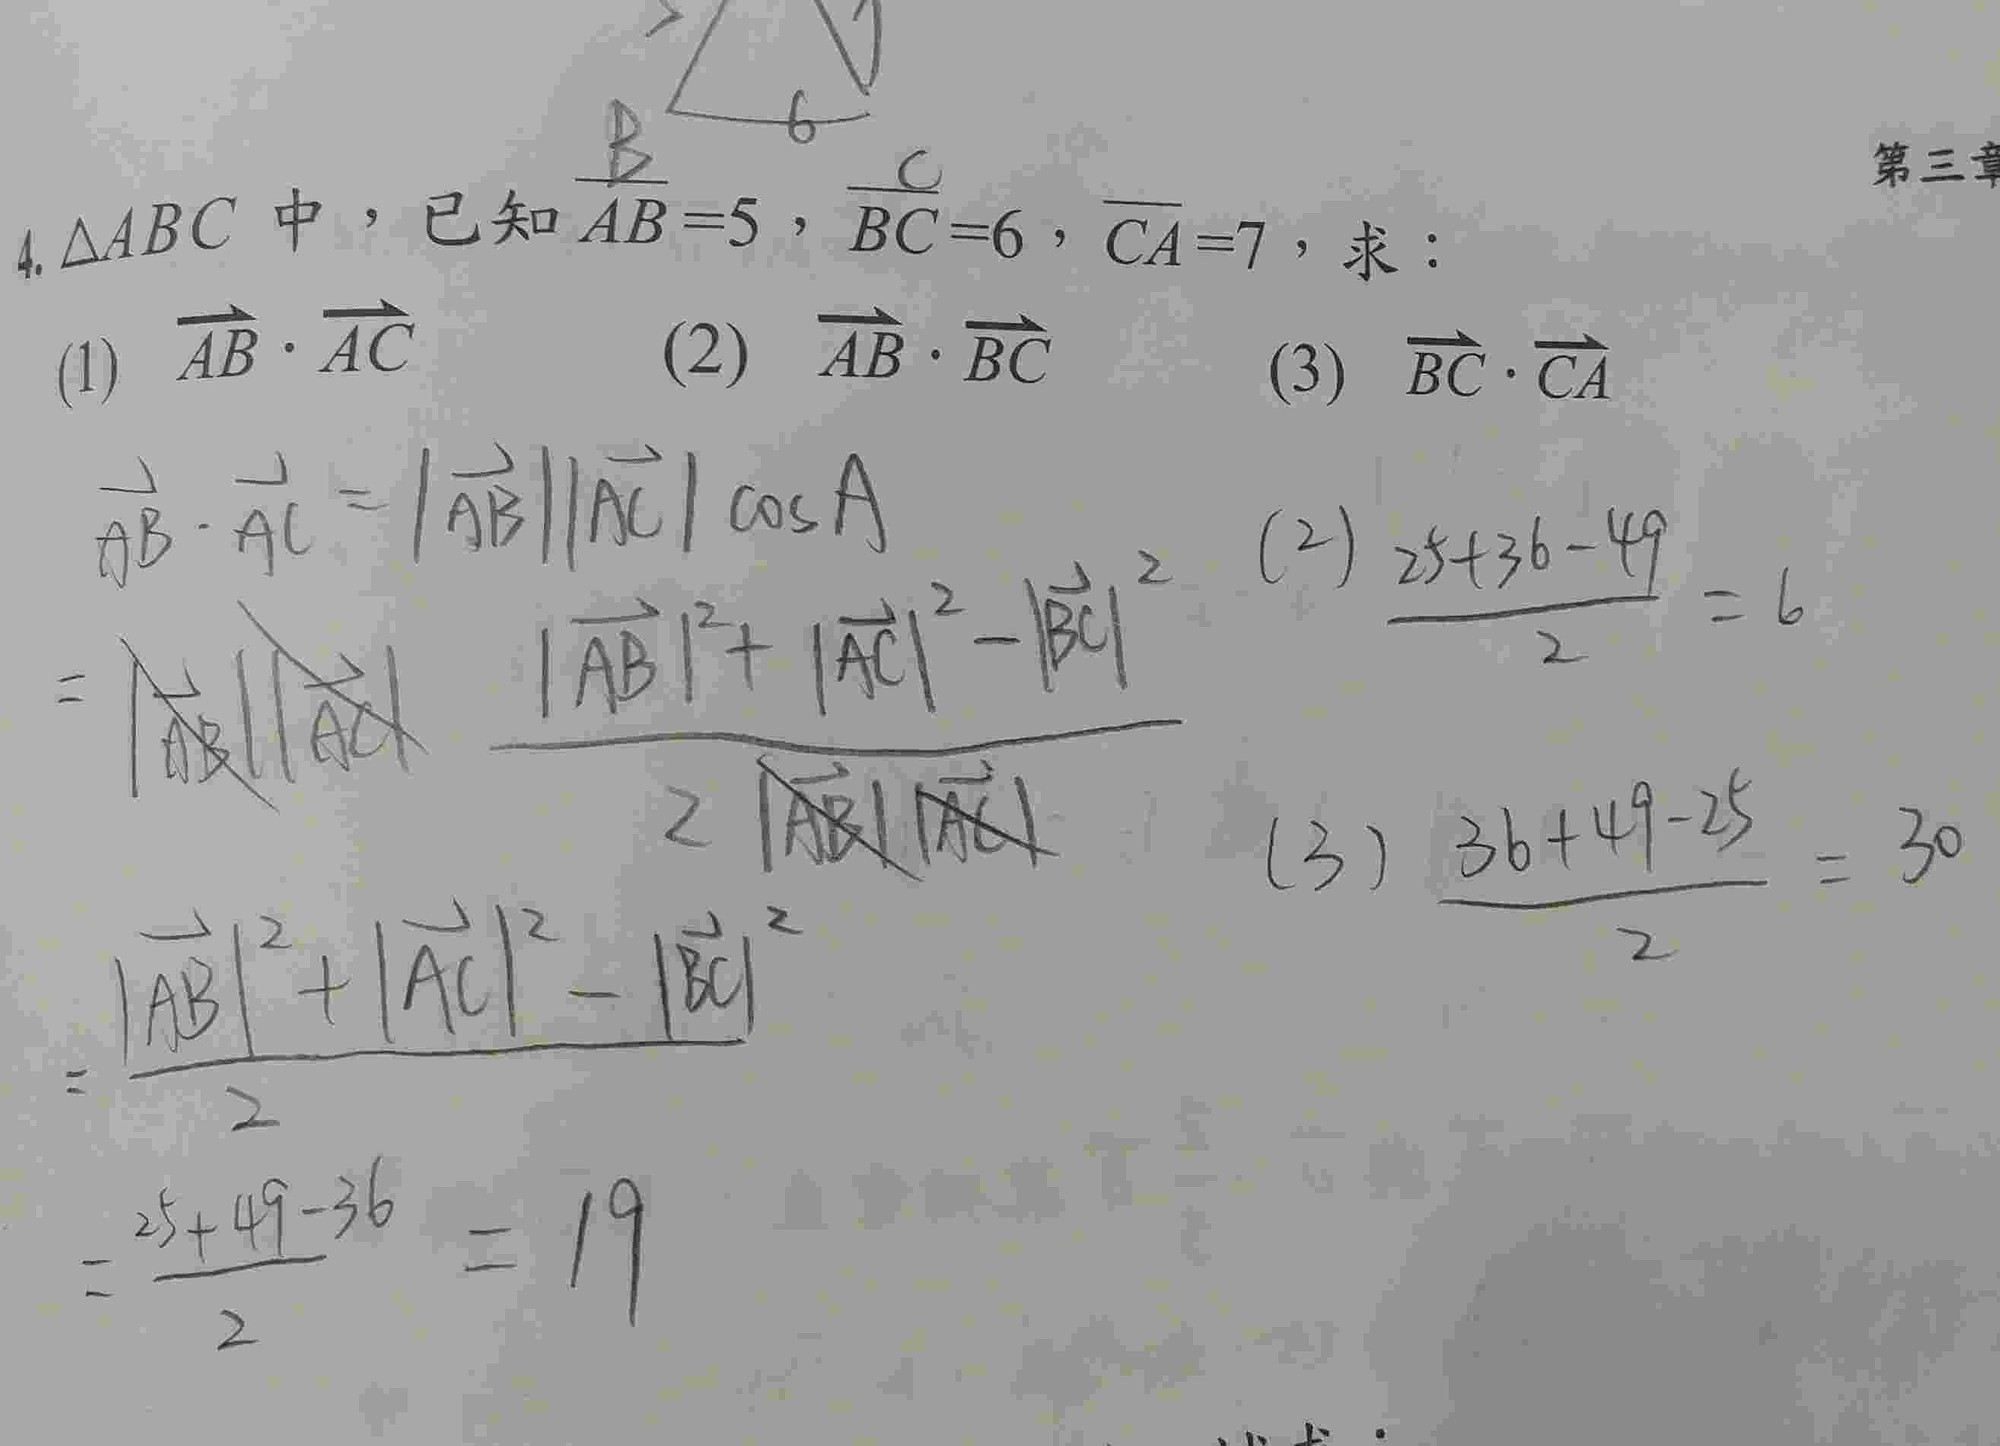 6
B
C
第三章
4. △ABC 中，已知 A̅B̅=5，B̅C̅=6，C̅A̅=7，求：
(1) A⃗B⃗ · A⃗C⃗ (2) A⃗B⃗ · B⃗C⃗ (3) B⃗C⃗ · C⃗A⃗
A⃗B⃗ · A⃗C⃗ = |A⃗B⃗||A⃗C⃗| cos A
= |A⃗B⃗||A⃗C⃗| (|A⃗B⃗|² + |A⃗C⃗|² − |B⃗C⃗|²) / (2|A⃗B⃗||A⃗C⃗|)
= (|A⃗B⃗|² + |A⃗C⃗|² − |B⃗C⃗|²) / 2
= (25+49−36) / 2 = 19
(2) (25+36−49) / 2 = 6
(3) (36+49−25) / 2 = 30